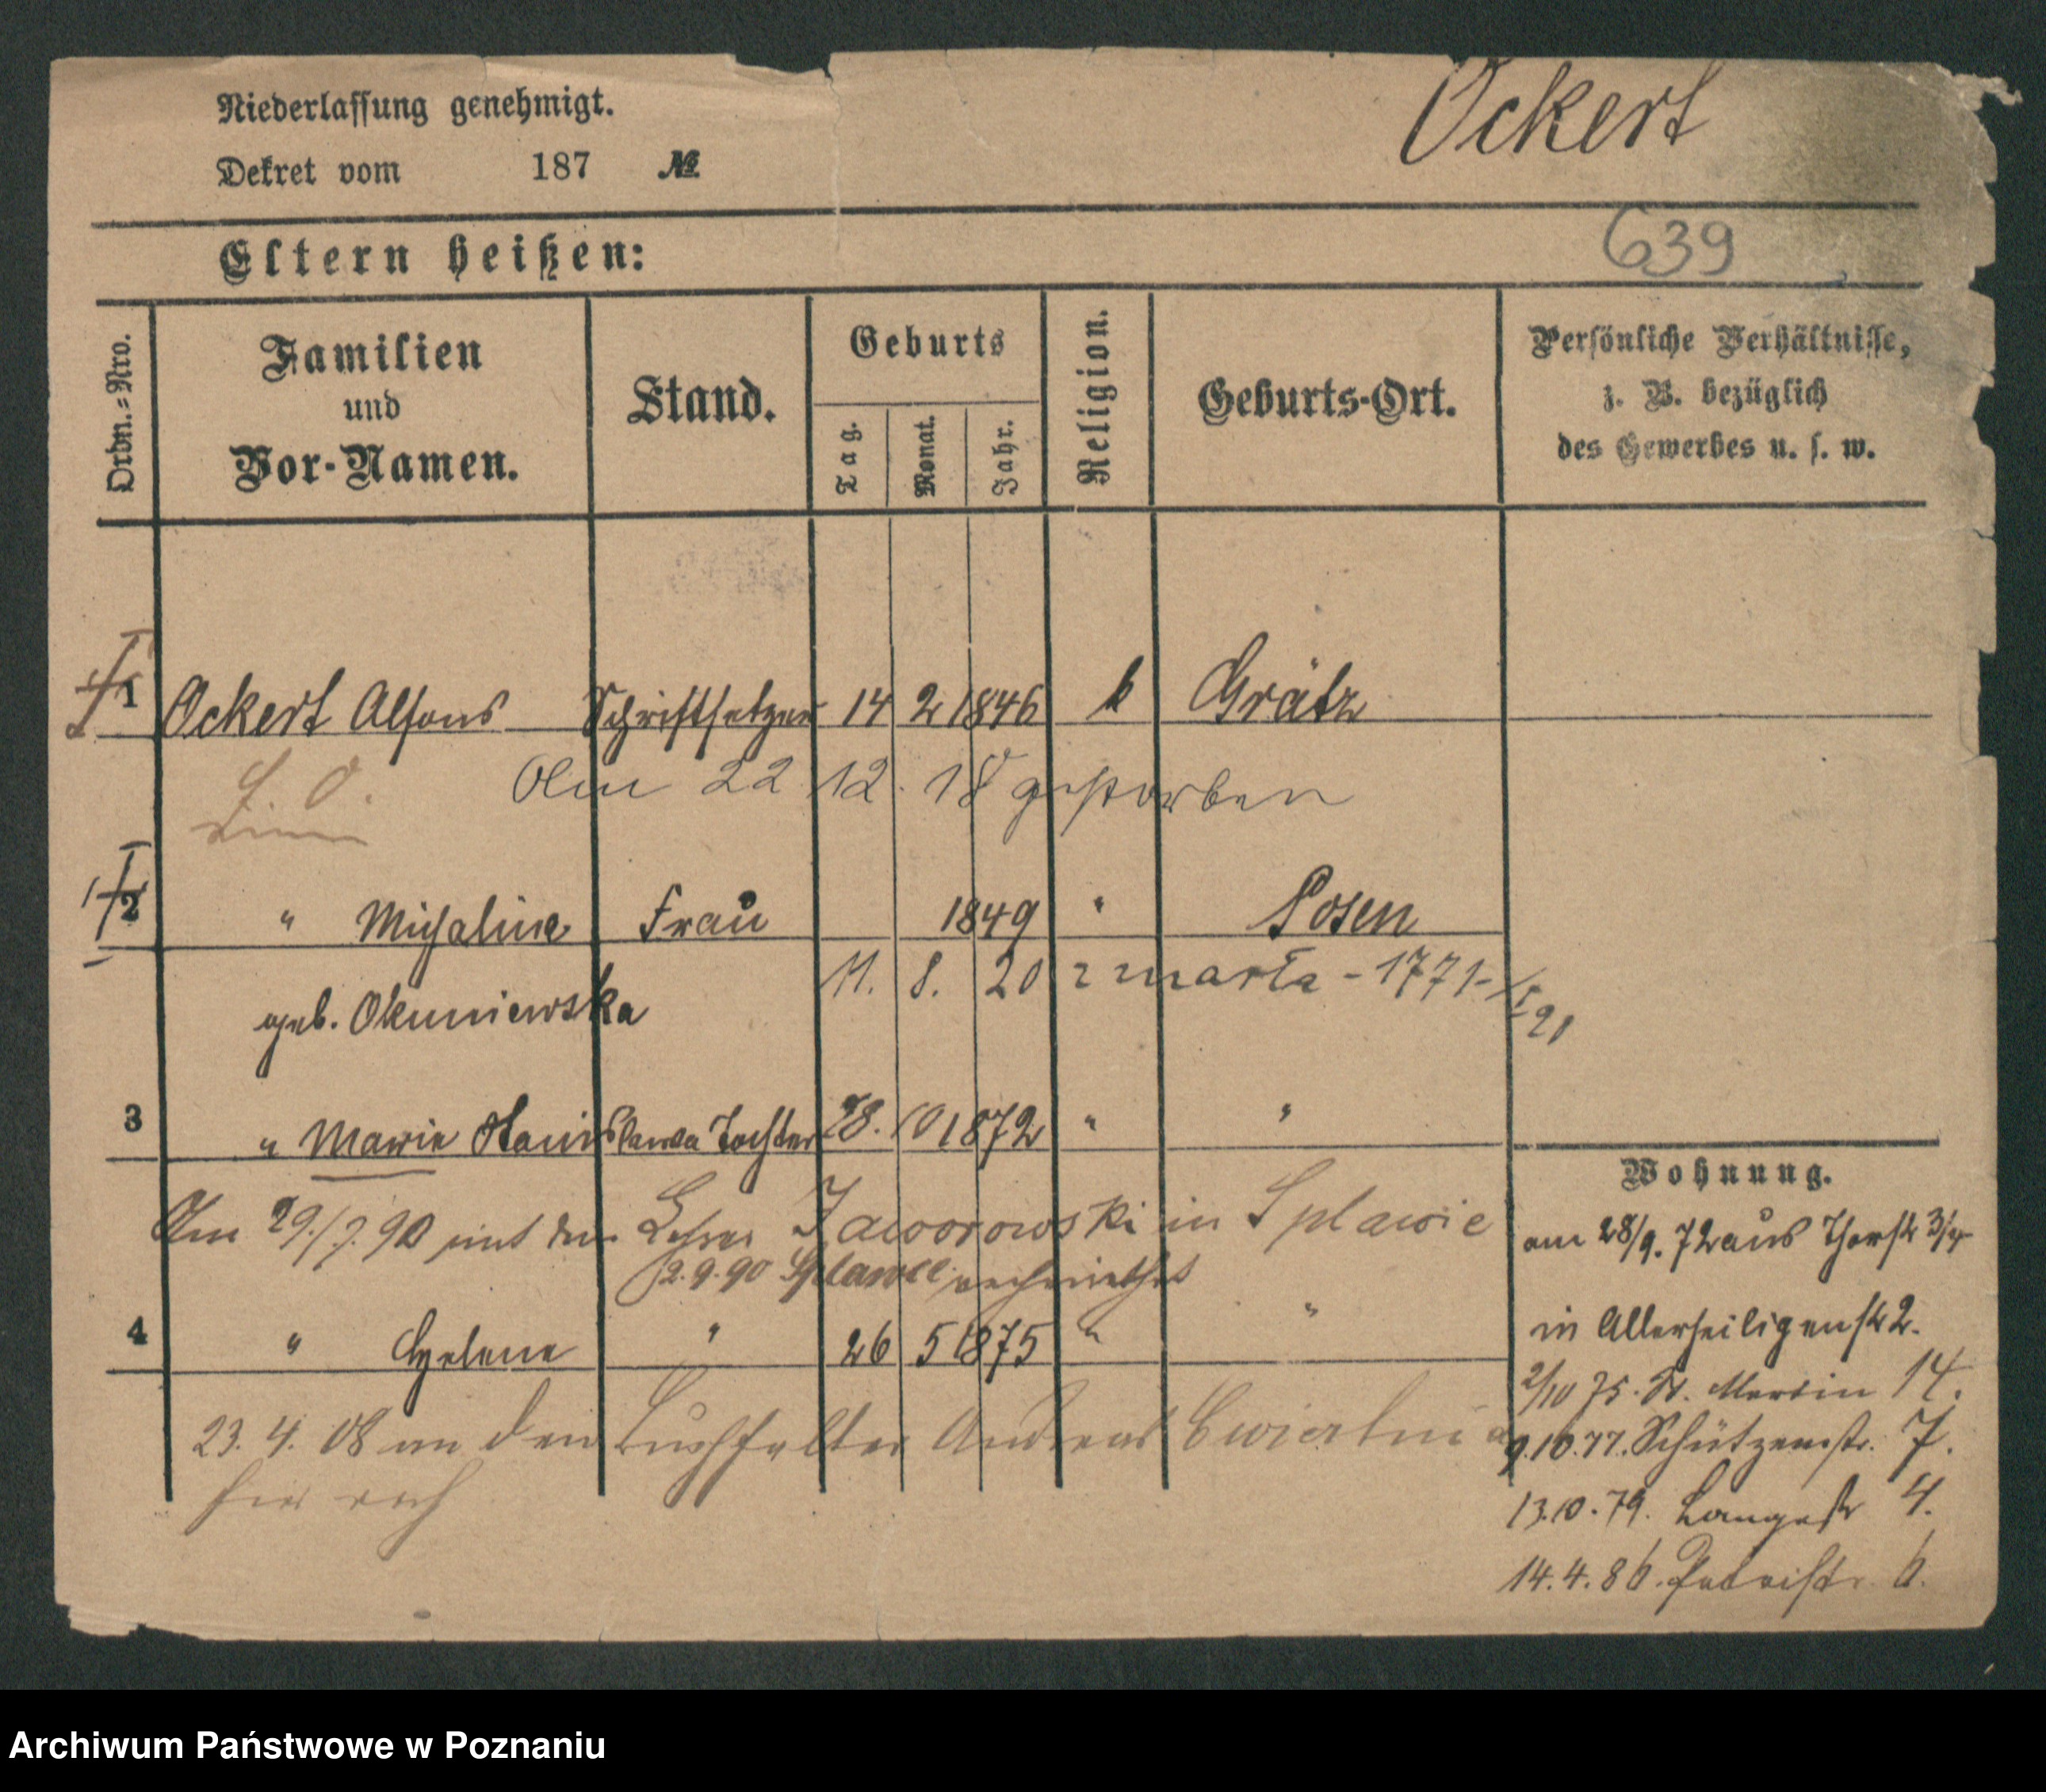 Niederlassung genehmigt.
Ockert
Dekret vom 187 №
639
Eltern heißen:
Ordn.=Nro.
Familien und Vor-Namen.
Stand.
Geburts
Tag.
Monat.
Jahr.
Religion.
Geburts-Ort.
Persönliche Verhältnisse,
z. B. bezüglich
des Gewerbes u. s. w.
1 Ockert Alfons Schriftsetzer 14 2 1846 k Grätz
Am 22 12. 18 gestorben
2 " Michaline Frau 1849 " Posen
11. 8. 20 zmarła - 1771-
geb. Okuniewska
3 " Marie Stanislawa Tochter 28. 10 1872 " "
Am 29./7. 90 mit dem Lehrer Jaworowski in Splawie
2.9.90 Splawie verheirathet
4 " Helene " 26 5 1875 " "
23. 4. 08 an den Buchhalter Andreas Cwiertnia
hier verh
Wohnung.
am 28/9. 72 aus Thorstr 3/4
in Allerheiligenstr 2.
2/10 75. St. Martin 14.
9.10.77. Schützenstr. 7.
13.10.79. Langestr 4.
14.4.86. Petristr. 6.
Archiwum Państwowe w Poznaniu